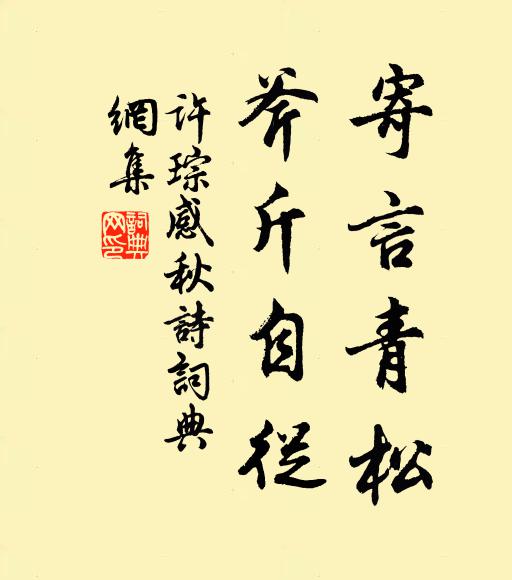 寄言青松
斧斤自從
許琮感秋詩詞典
網集
詞典網印